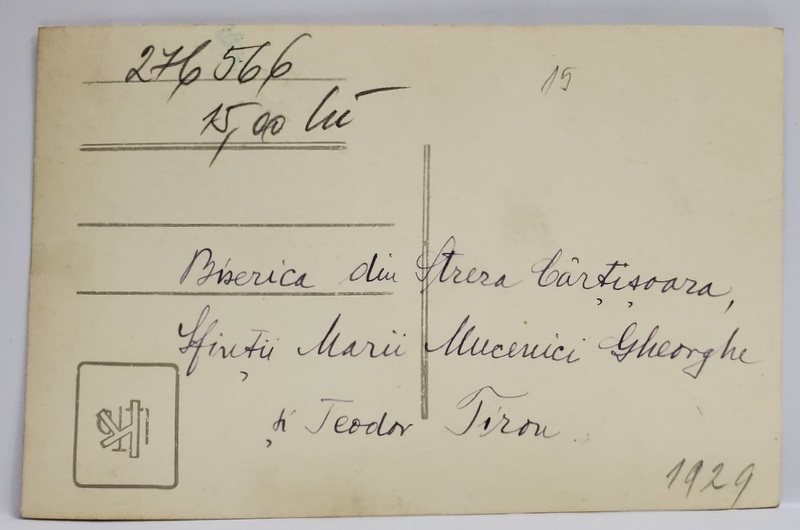 276566
15,00 lei
15
Biserica din Streza Cârțișoara,
Sfinții Marii Mucenici Gheorghe
și Teodor Tiron
1929